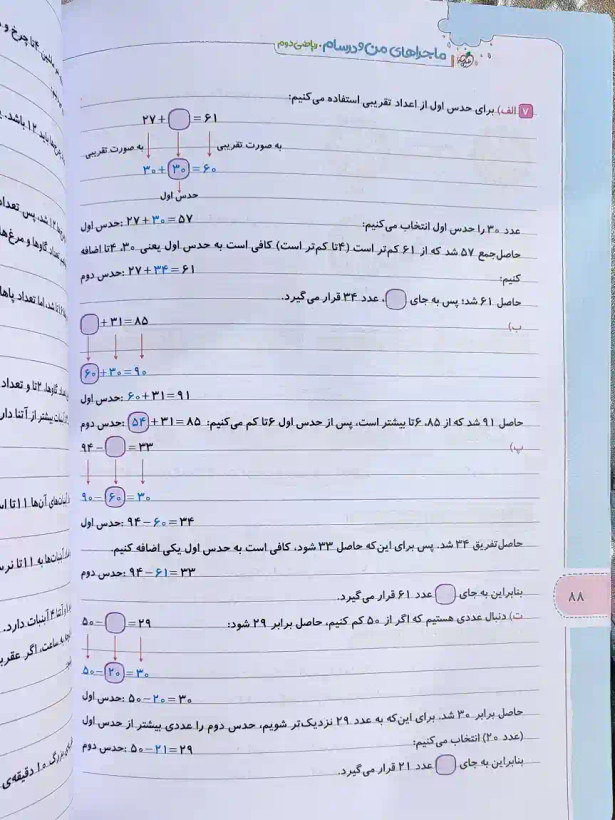 ماجراهای من و درسام - ریاضی دوم
۷ الف) برای حدس اول از اعداد تقریبی استفاده می‌کنیم:
۲۷ + = ۶۱
به صورت تقریبی به صورت تقریبی
۳۰ + ۳۰ = ۶۰
حدس اول
عدد ۳۰ را حدس اول انتخاب می‌کنیم: حدس اول: ۲۷ + ۳۰ = ۵۷
حاصل جمع ۵۷ شد که از ۶۱ کم‌تر است (۴ تا کم‌تر است) کافی است به حدس اول یعنی ۳۰، ۴ تا اضافه
کنیم: حدس دوم: ۲۷ + ۳۴ = ۶۱
حاصل ۶۱ شد؛ پس به جای ، عدد ۳۴ قرار می‌گیرد.
ب) + ۳۱ = ۸۵
۶۰ + ۳۰ = ۹۰
حدس اول: ۶۰ + ۳۱ = ۹۱
حاصل ۹۱ شد که از ۸۵، ۶ تا بیشتر است، پس از حدس اول ۶ تا کم می‌کنیم: حدس دوم: ۵۴ + ۳۱ = ۸۵
پ) ۹۴ - = ۳۳
۹۰ - ۶۰ = ۳۰
حدس اول: ۹۴ - ۶۰ = ۳۴
حاصل تفریق ۳۴ شد. پس برای این‌که حاصل ۳۳ شود، کافی است به حدس اول یکی اضافه کنیم.
حدس دوم: ۹۴ - ۶۱ = ۳۳
بنابراین به جای عدد ۶۱ قرار می‌گیرد.
ت) دنبال عددی هستیم که اگر از ۵۰ کم کنیم، حاصل برابر ۲۹ شود: ۵۰ - = ۲۹
۵۰ - ۲۰ = ۳۰
حدس اول: ۵۰ - ۲۰ = ۳۰
حاصل برابر ۳۰ شد. برای این‌که به عدد ۲۹ نزدیک‌تر شویم، حدس دوم را عددی بیشتر از حدس اول
(عدد ۲۰) انتخاب می‌کنیم: حدس دوم: ۵۰ - ۲۱ = ۲۹
بنابراین به جای عدد ۲۱ قرار می‌گیرد.
۸۸